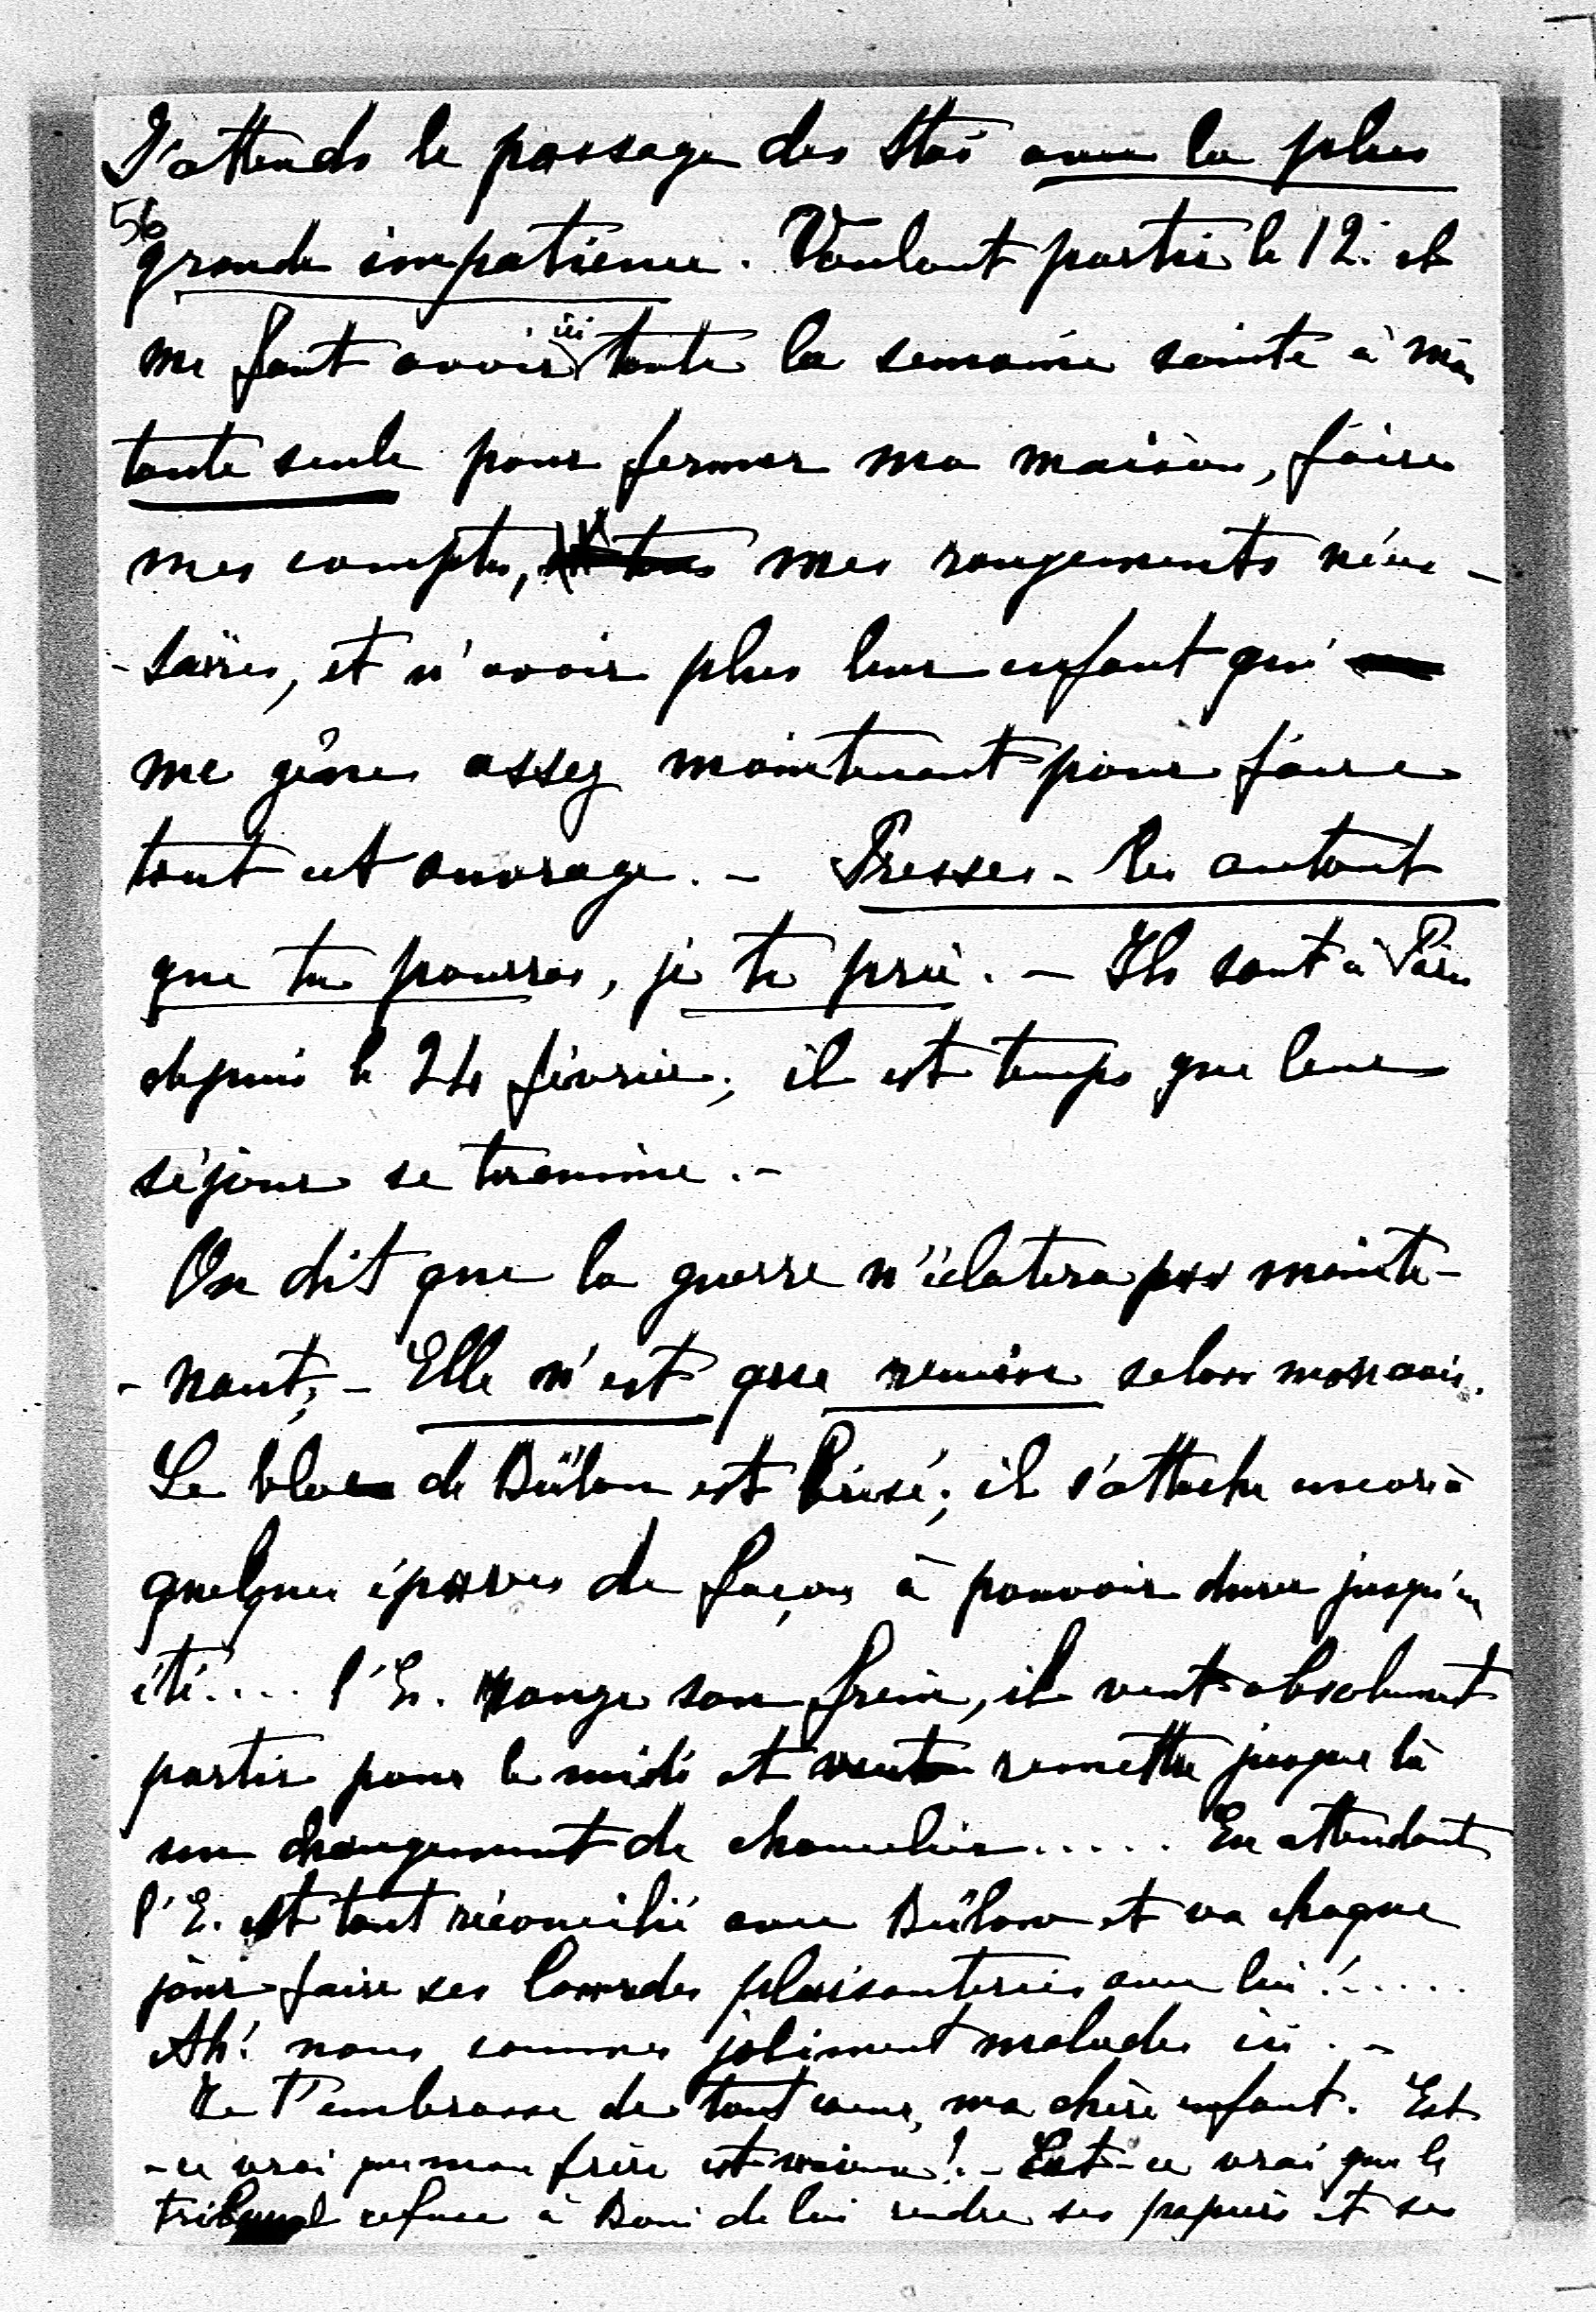 J'attends le passage des Stas avec la plus
56
grande impatience. Voulant partir le 12. il
me faut avoir ici toute la semaine sainte à moi
toute seule pour fermer ma maison, faire
mes comptes, mes rangements néces-
-saires, et n'avoir plus leur enfant qui
me gêne assez maintenant pour faire
tout cet ouvrage. - Presses-les autant
que tu pourras, je te prie. - Ils sont à Paris
depuis le 24 février; il est temps que leur
séjour se termine. -
On dit que la guerre n'éclatera pas mainte-
-nant; - Elle n'est que remise selon mon avis.
Le bloc de Bülow est brisé; il s'attache encore à
quelques épaves de façon à pouvoir durer jusqu'en
été.... l'E. ronge son frein, il veut absolument
partir pour le midi et veut remettre jusque là
un changement de chancelier..... En attendant
l'E. est tout réconcilié avec Bülow et va chaque
jour faire ses lourdes plaisanteries avec lui!.....
Ah! nous sommes joliment malades ici. -
Je t'embrasse de tout coeur, ma chère enfant. Est
-ce vrai que mon frère est mieux? - Est-ce vrai que le
tribunal refuse à Boni de lui rendre ses papiers et ses